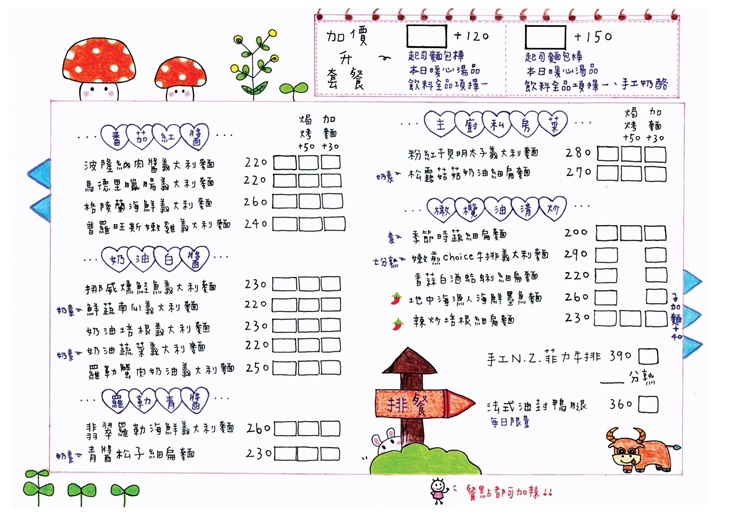 加價升套餐
+120
起司麵包棒
本日暖心湯品
飲料全品項擇一
+150
起司麵包棒
本日暖心湯品
飲料全品項擇一、手工奶酪
番茄紅醬
焗烤+50 加麵+30
波隆納肉醬義大利麵 220
馬德里臘腸義大利麵 220
格陵蘭海鮮義大利麵 260
普羅旺斯嫩雞義大利麵 240
奶油白醬
挪威燻鮭魚義大利麵 230
奶素 鮮蔬南瓜義大利麵 220
奶油培根義大利麵 230
奶素 奶油蔬菜義大利麵 220
羅勒蟹肉奶油義大利麵 250
羅勒青醬
翡翠羅勒海鮮義大利麵 260
奶素 青醬松子細扁麵 230
主廚私房菜
焗烤+50 加麵+30
粉紅干貝明太子義大利麵 280
奶素 松露菇菇奶油細扁麵 270
橄欖油清炒
素 季節時蔬細扁麵 200
七分熟 嫩煎choice牛排義大利麵 290
青蒜白酒蛤蜊細扁麵 220
地中海漁人海鮮墨魚麵 260
辣炒培根細扁麵 230
加麵+40
排餐
手工N.Z.菲力牛排 390
分熟
法式油封鴨腿 360
每日限量
餐點都可加辣!!